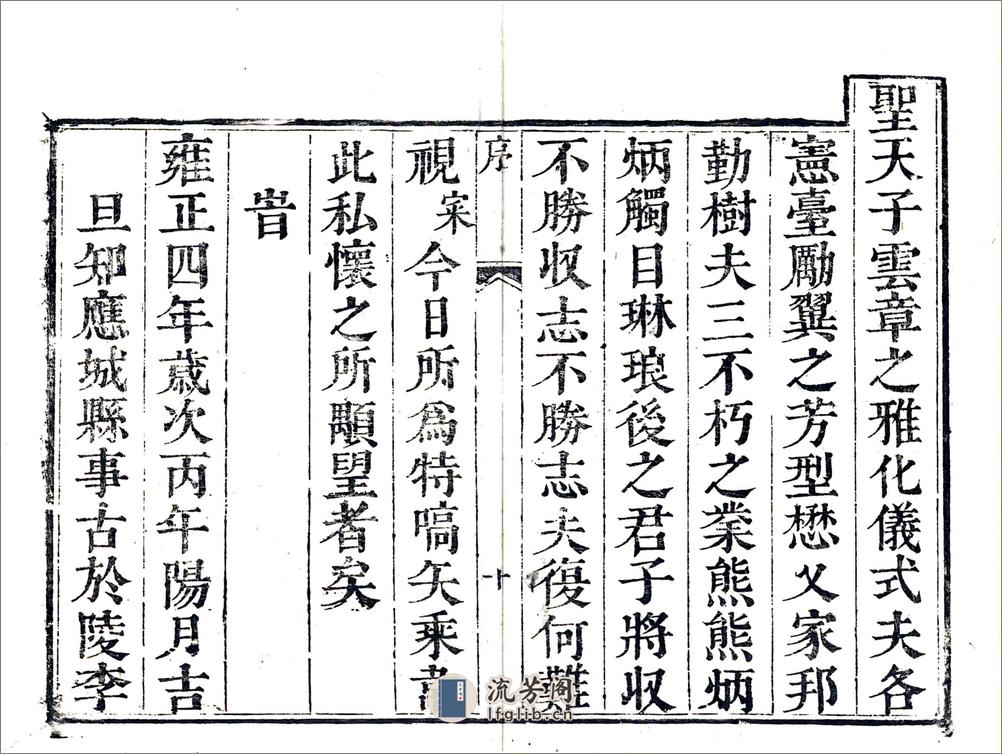 聖天子雲章之雅化儀式夫各
憲臺勵翼之芳型懋乂家邦
勤樹夫三不朽之業熊熊炳
炳觸目琳琅後之君子將收
不勝收志不勝志夫復何難
序
十
視寀今日所為特嚆矢乘韋
此私懷之所顒望者矣
旹
雍正四年歲次丙午陽月吉
旦知應城縣事古於陵李
流芳阁
lfglib.cn